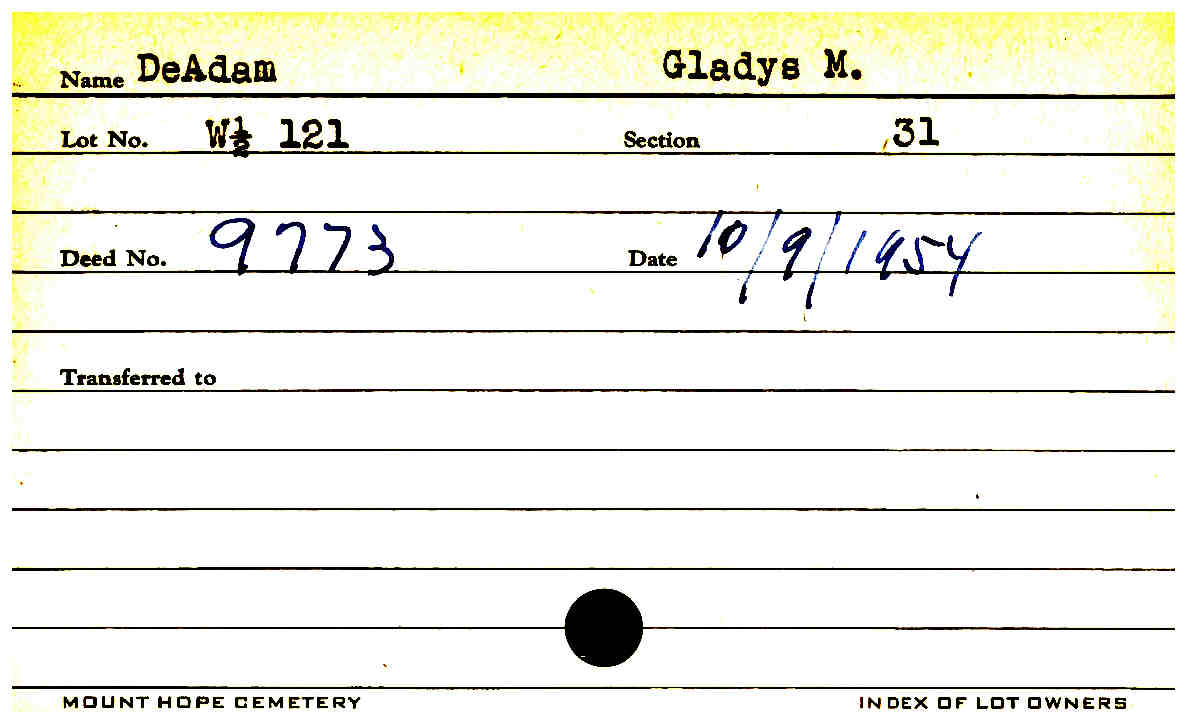 Name DeAdam Gladys M.
Lot No. W½ 121 Section 31
Deed No. 9773 Date 10/9/1954
Transferred to
MOUNT HOPE CEMETERY INDEX OF LOT OWNERS